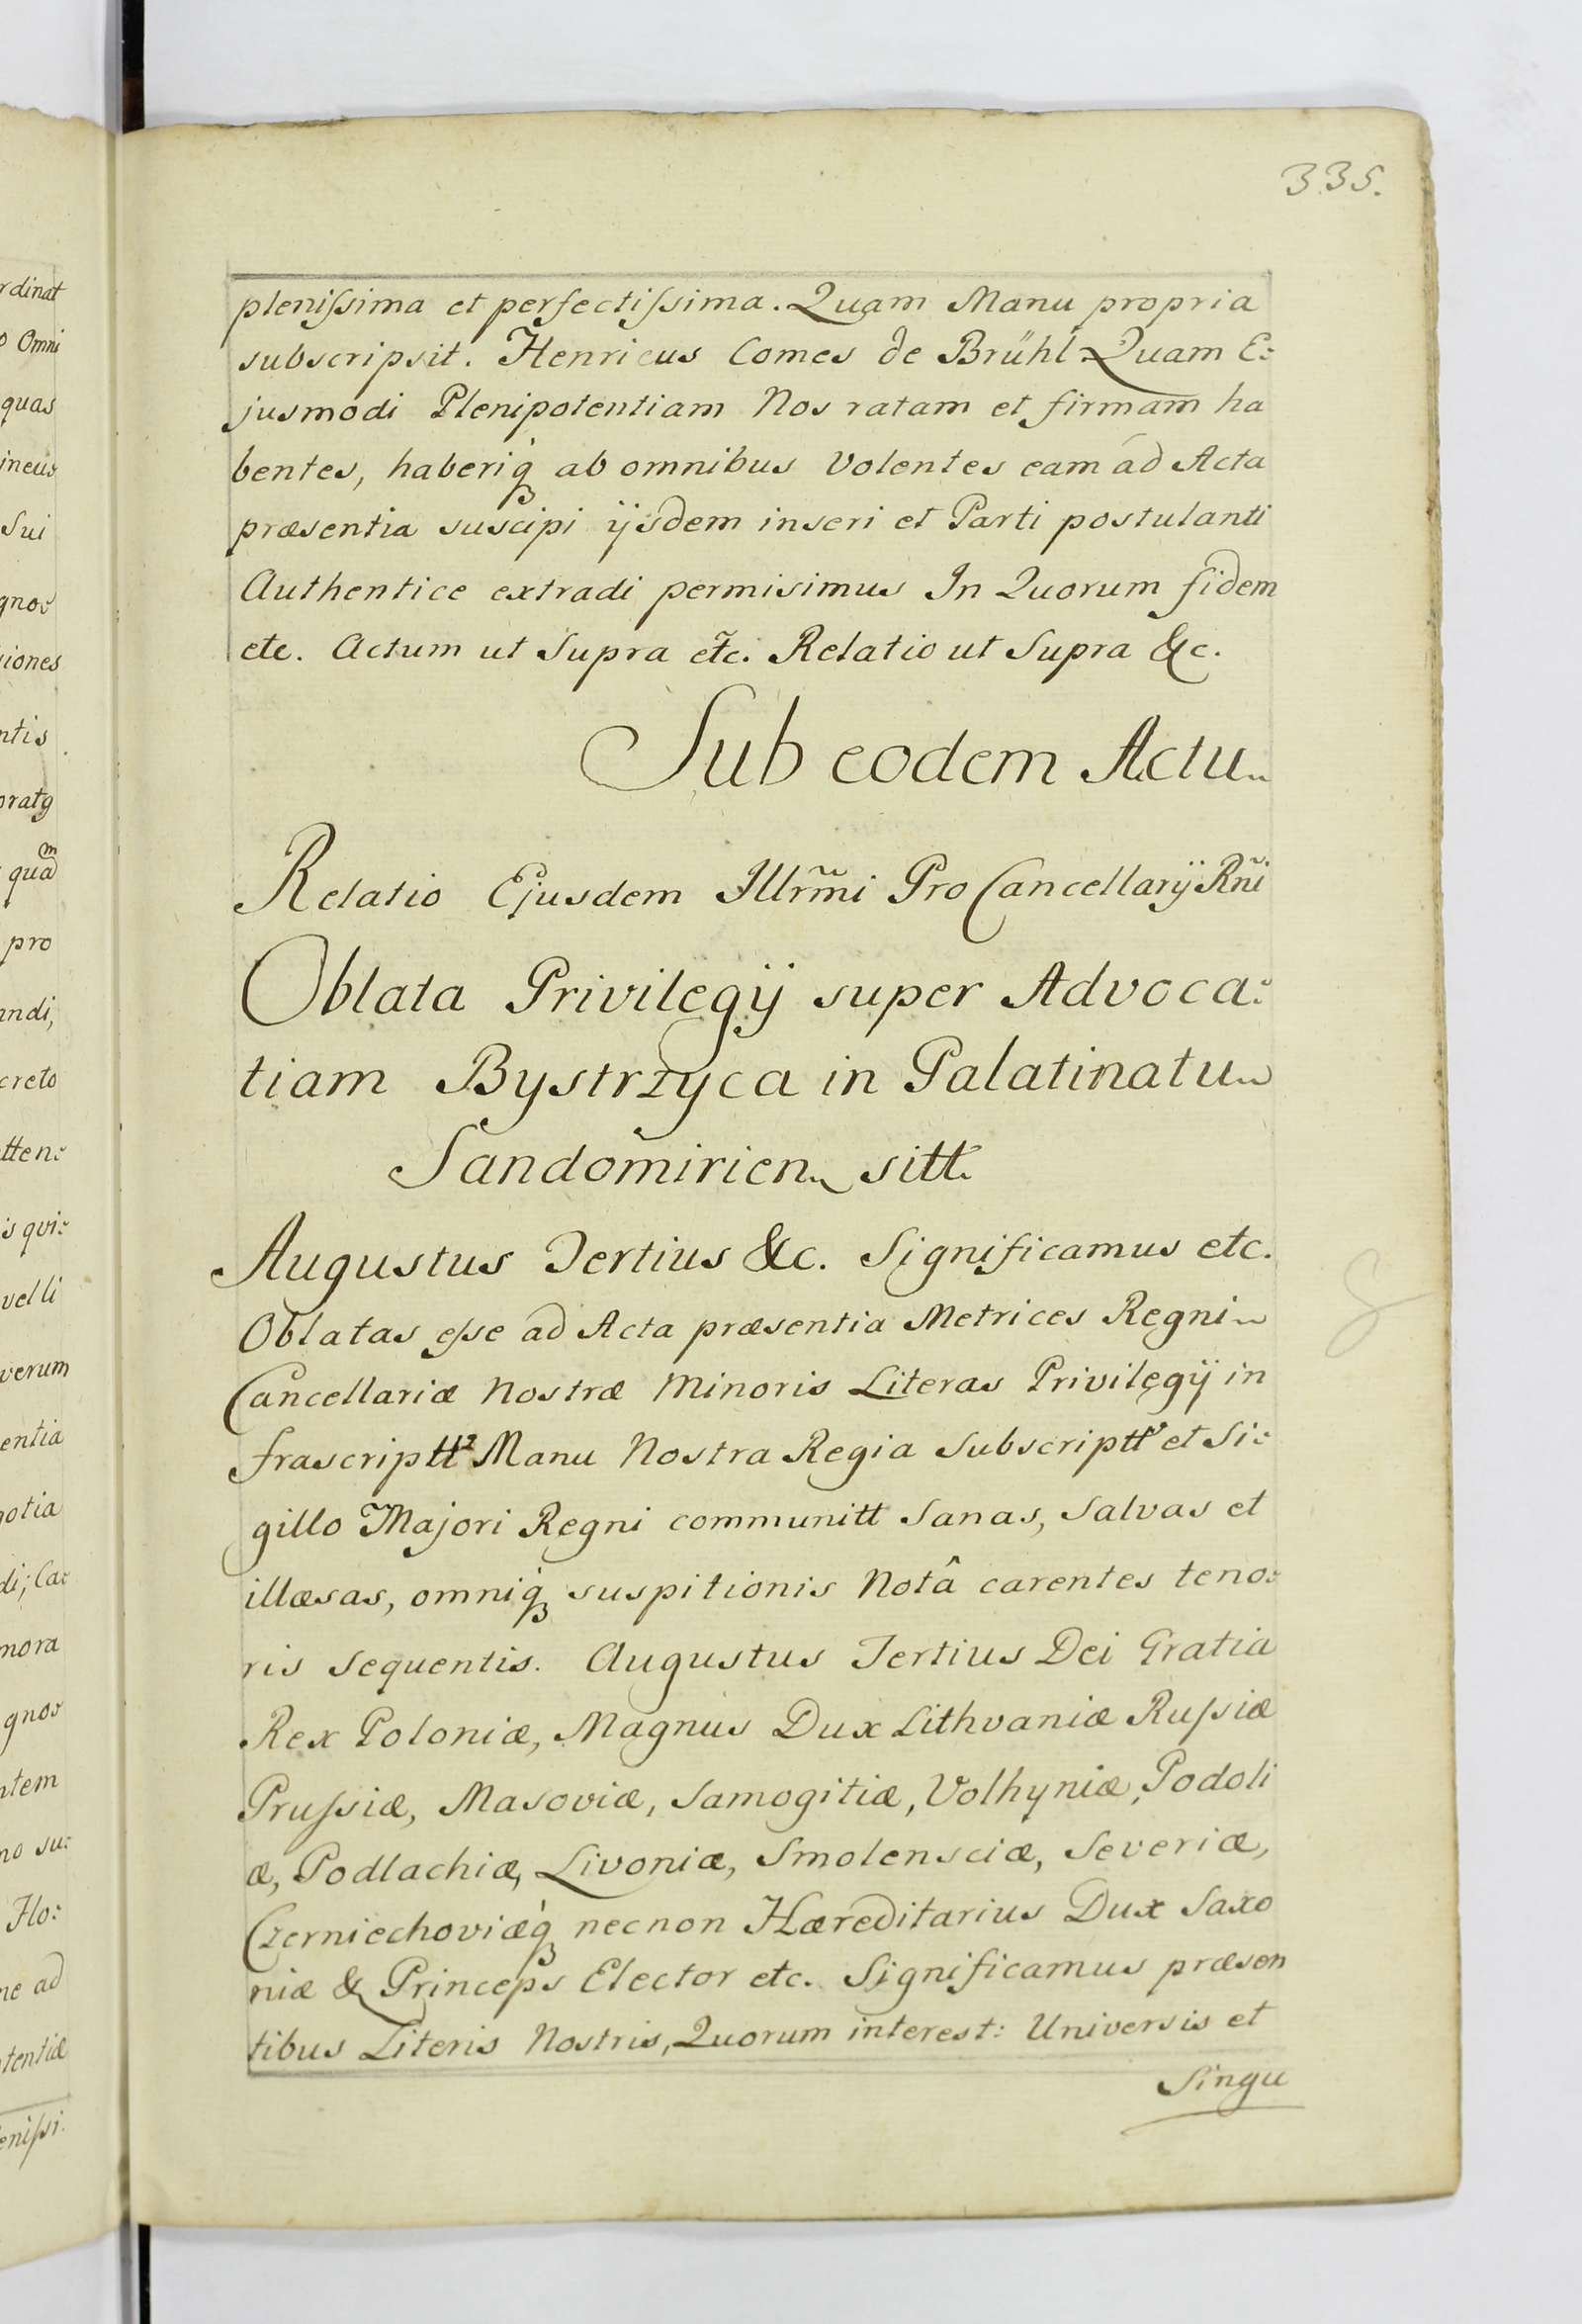 335.
rdinat
o Omni
quas
ineus
Sui
gnos
iones
ntis
oratq
quam
pro
andi,
creto
tten:
is qvi:
velli
verum
entia
gotia
di; Ca:
mora
gnos
ntem
no su:
Flo:
ne ad
tentiæ
enissi.
plenissima et perfectissima. Quam Manu propria
subscripsit. Henricus Comes de Brühl Quam E:
jusmodi Plenipotentiam Nos ratam et firmam ha
bentes, haberiq́ꝫ ab omnibus Volentes eam ád Acta
præsentia suscipi ijsdem inseri et Parti postulanti
Authentice extradi permisimus In Quorum fidem
etc. Actum ut Supra etc̃. Relatio ut Supra &c.
Sub eodem Actu
Relatio Ejusdem Illrm̃i Pro Cancellarij Rñi
Oblata Privilegij super Advoca:
tiam Bystrzyca in Palatinatu
Sandomirien sitt.
Augustus Tertius &c. Significamus etc.
Oblatas esse ad Acta præsentia Metrices Regni
Cancellariæ Nostræ Minoris Literas Privilegij in
frascriptt Manu Nostra Regia Subscriptt et Si:
gillo Majori Regni communitt Sanas, Salvas et
illæsas, omniq́ꝫ suspitionis Notâ carentes teno:
ris Sequentis. Augustus Tertius Dei Gratia
Rex Poloniæ, Magnus Dux Lithvaniæ Russiæ
Prussiæ, Masoviæ, Samogitiæ, Volhyniæ, Podoli
æ, Podlachiæ, Livoniæ, Smolensciæ, Severiæ,
Czerniechoviæq́ꝫ necnon Hæreditarius Dux Saxo
niæ & Princeps Elector etc. Significamus præsen
tibus Literis Nostris, Quorum interest: Universis et
Singu